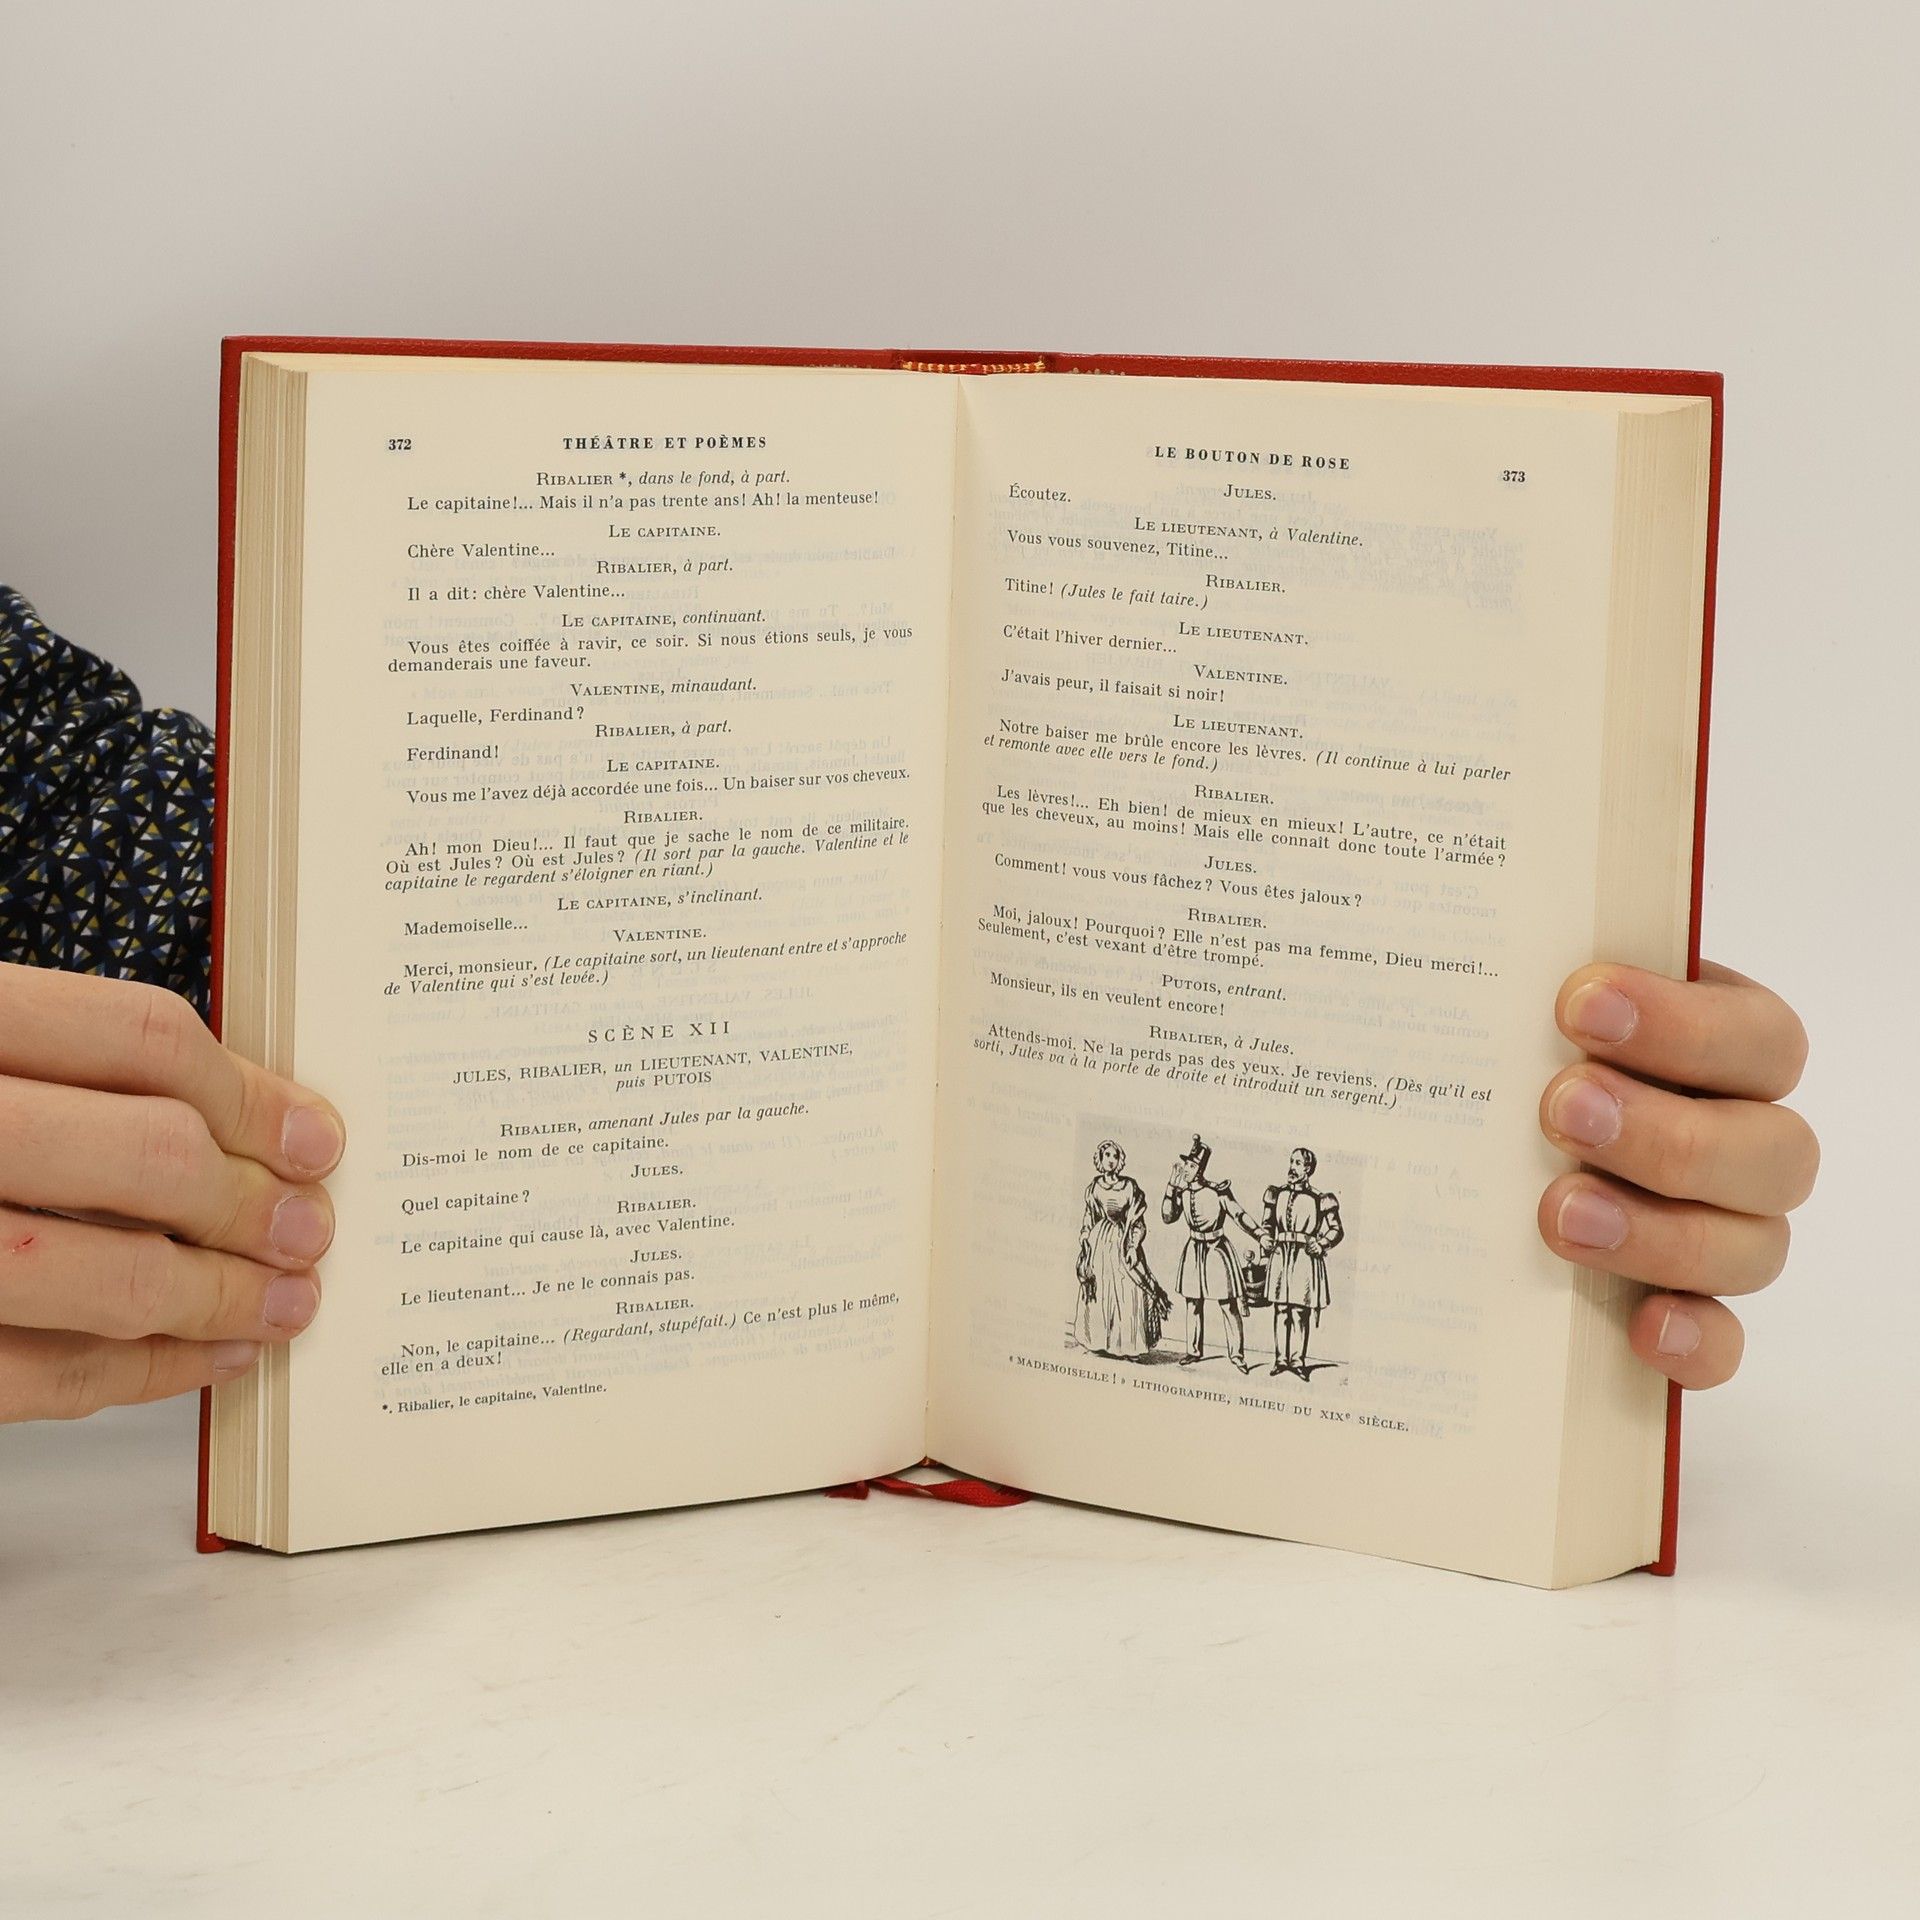 372
THÉÂTRE ET POÈMES
RIBALIER *, dans le fond, à part.
Le capitaine!... Mais il n'a pas trente ans! Ah! la menteuse!
LE CAPITAINE.
Chère Valentine...
RIBALIER, à part.
Il a dit: chère Valentine...
LE CAPITAINE, continuant.
Vous êtes coiffée à ravir, ce soir. Si nous étions seuls, je vous
demanderais une faveur.
VALENTINE, minaudant.
Laquelle, Ferdinand?
RIBALIER, à part.
Ferdinand!
LE CAPITAINE.
Vous me l'avez déjà accordée une fois... Un baiser sur vos cheveux.
RIBALIER.
Ah! mon Dieu!... Il faut que je sache le nom de ce militaire.
Où est Jules? Où est Jules? (Il sort par la gauche. Valentine et le
capitaine le regardent s'éloigner en riant.)
LE CAPITAINE, s'inclinant.
Mademoiselle...
VALENTINE.
Merci, monsieur. (Le capitaine sort, un lieutenant entre et s'approche
de Valentine qui s'est levée.)
SCÈNE XII
JULES, RIBALIER, un LIEUTENANT, VALENTINE,
puis PUTOIS
RIBALIER, amenant Jules par la gauche.
Dis-moi le nom de ce capitaine.
JULES.
Quel capitaine?
RIBALIER.
Le capitaine qui cause là, avec Valentine.
JULES.
Le lieutenant... Je ne le connais pas.
RIBALIER.
Non, le capitaine... (Regardant, stupéfait.) Ce n'est plus le même,
elle en a deux!
*. Ribalier, le capitaine, Valentine.
LE BOUTON DE ROSE
373
JULES.
Écoutez.
LE LIEUTENANT, à Valentine.
Vous vous souvenez, Titine...
RIBALIER.
Titine! (Jules le fait taire.)
LE LIEUTENANT.
C'était l'hiver dernier...
VALENTINE.
J'avais peur, il faisait si noir!
LE LIEUTENANT.
Notre baiser me brûle encore les lèvres. (Il continue à lui parler
et remonte avec elle vers le fond.)
RIBALIER.
Les lèvres!... Eh bien! de mieux en mieux! L'autre, ce n'était
que les cheveux, au moins! Mais elle connaît donc toute l'armée?
JULES.
Comment! vous vous fâchez? Vous êtes jaloux?
RIBALIER.
Moi, jaloux! Pourquoi? Elle n'est pas ma femme, Dieu merci!...
Seulement, c'est vexant d'être trompé.
PUTOIS, entrant.
Monsieur, ils en veulent encore!
RIBALIER, à Jules.
Attends-moi. Ne la perds pas des yeux. Je reviens. (Dès qu'il est
sorti, Jules va à la porte de droite et introduit un sergent.)
« MADEMOISELLE! » LITHOGRAPHIE, MILIEU DU XIXe SIÈCLE.